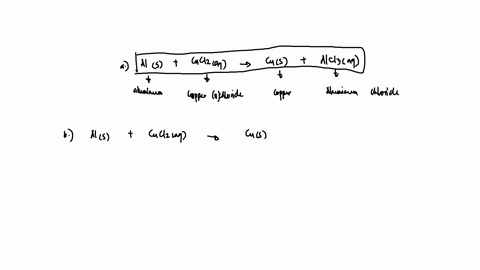 a.) Al(s) + CuCl2(aq) → Cu(s) + AlCl3(aq)
aluminum copper (II) chloride copper Aluminum chloride
b.) Al(s) + CuCl2(aq) → Cu(s)